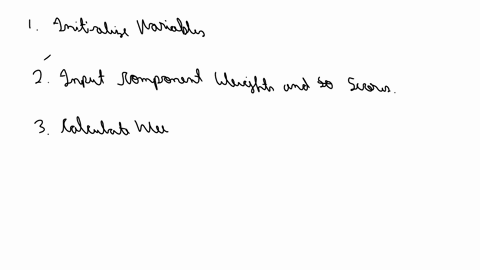 1. Initialise Variables
2. Input Component Weights and Scores.
3. Calculate